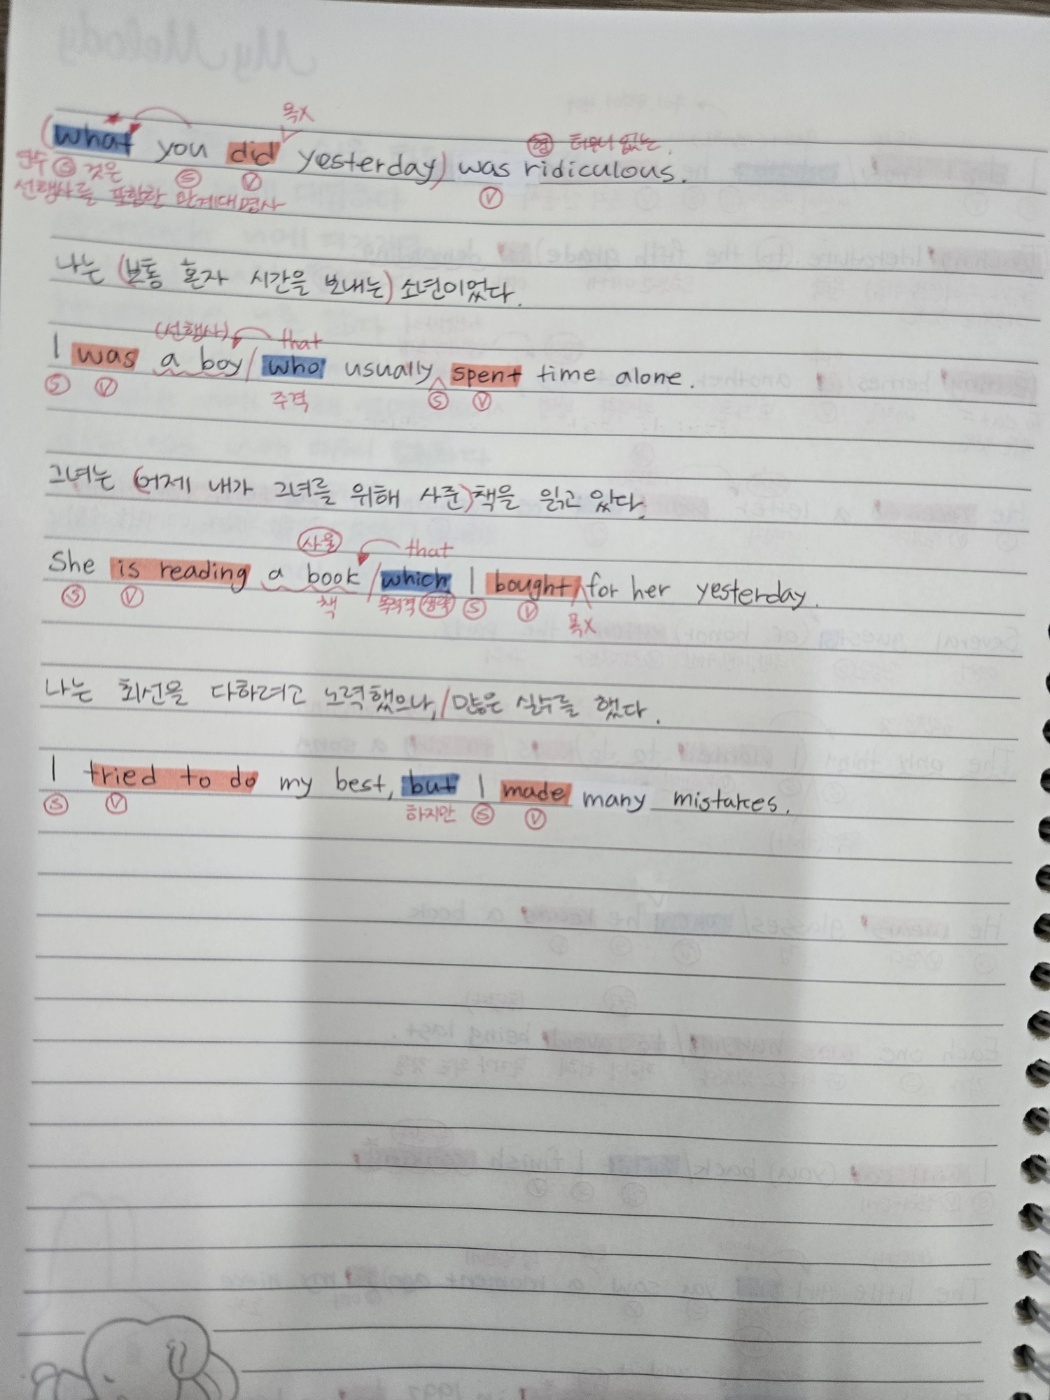 목X
(what you did yesterday) was ridiculous.
형 터무니 없는.
단수 S 것은 S V V
선행사를 포함한 관계대명사
나는 (보통 혼자 시간을 보내는) 소년이었다.
(선행사) that
I was a boy / who usually spent time alone.
S V 주격 S V
그녀는 (어제 내가 그녀를 위해 사준) 책을 읽고 있다.
사물 that
She is reading a book / which I bought for her yesterday.
S V 책 목적격 생략 S V 목X
나는 최선을 다하려고 노력했으나, / 많은 실수를 했다.
I tried to do my best, but I made many mistakes.
S V 하지만 S V